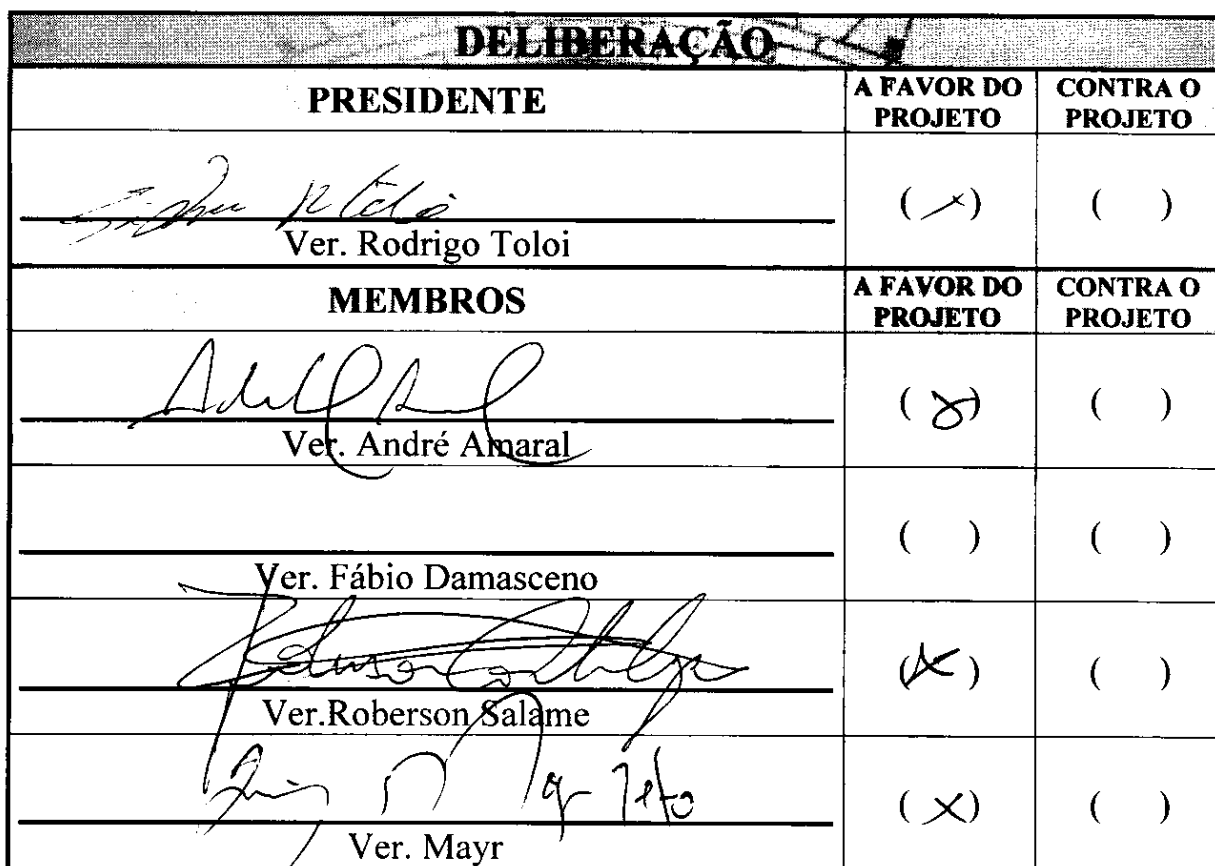 DELIBERAÇÃO
PRESIDENTE A FAVOR DO PROJETO CONTRA O PROJETO
( x ) ( )
Ver. Rodrigo Toloi
MEMBROS A FAVOR DO PROJETO CONTRA O PROJETO
( x ) ( )
Ver. André Amaral
( ) ( )
Ver. Fábio Damasceno
( x ) ( )
Ver.Roberson Salame
( x ) ( )
Ver. Mayr